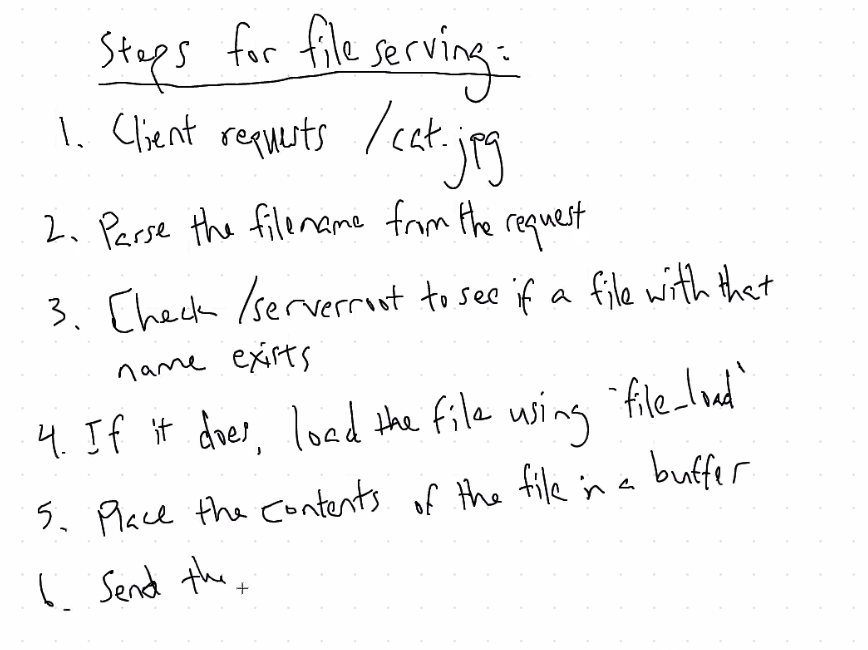 Steps for file serving:
1. Client requests /cat.jpg
2. Parse the filename from the request
3. Check /serverroot to see if a file with that
name exists
4. If it does, load the file using `file_load`
5. Place the contents of the file in a buffer
6. Send the